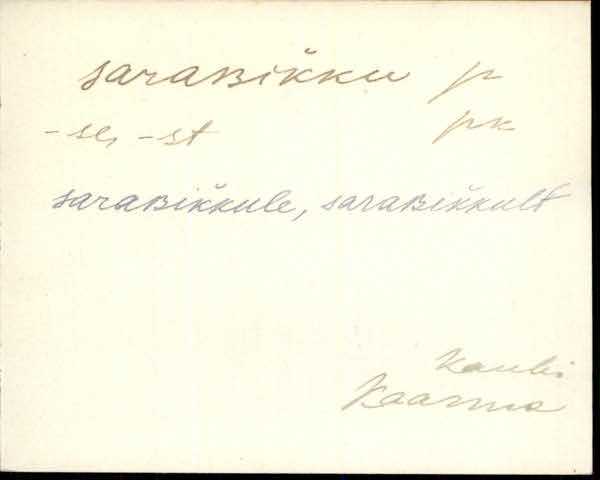 saraʙik̆ku p
-se, -st pk
saraʙik̆kule, saraʙik̆kult
Kaubi
Kaarma